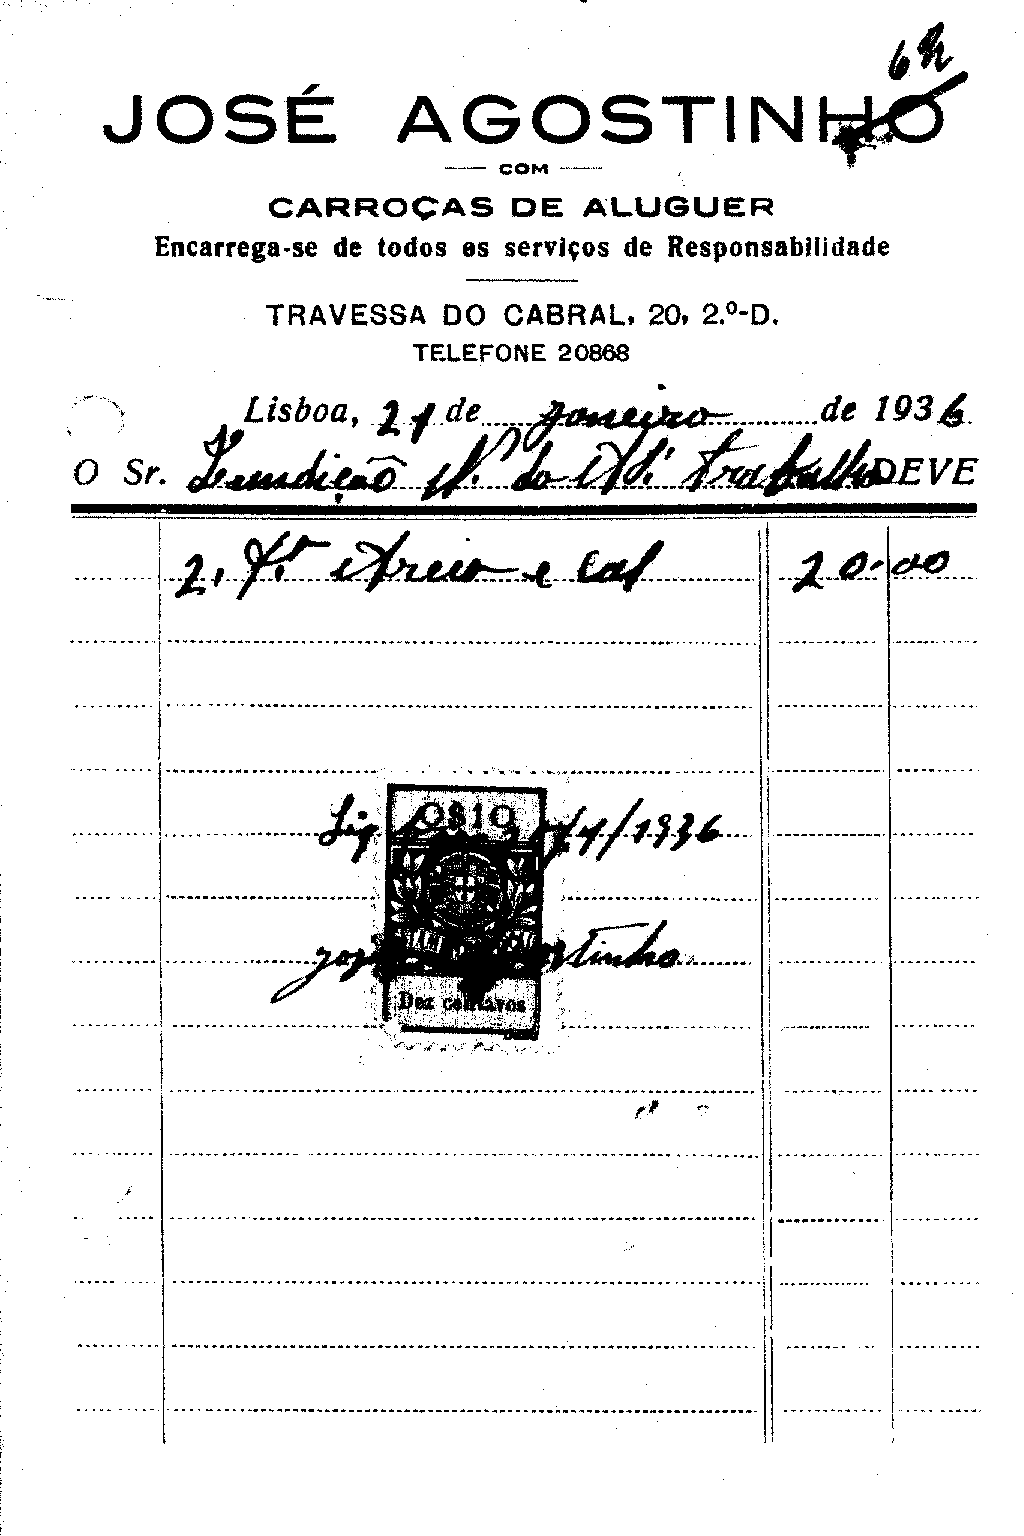 6
JOSÉ AGOSTINHO
COM
CARROÇAS DE ALUGUER
Encarrega-se de todos os serviços de Responsabilidade
TRAVESSA DO CABRAL, 20, 2.º-D.
TELEFONE 20868
Lisboa, 21 de janeiro de 1936
O Sr. Fundição N. do Trabalho DEVE
2. Areia e Cal 20-00
0$10
/1936
José Agostinho
Dez centavos